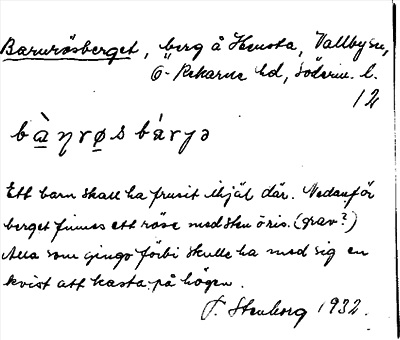 Barnrösberget, berg å Hensta, Vallby sn,
Ö-Rekarne hd, Söderm. l.
12
bàɳrøs bárɟə
Ett barn skall ha frusit ihjäl där. Nedanför
berget finnes ett röse med sten o ris. (grav?)
Alla som gingo förbi skulle ha med sig en
kvist att kasta på högen.
F. Stenborg 1932.